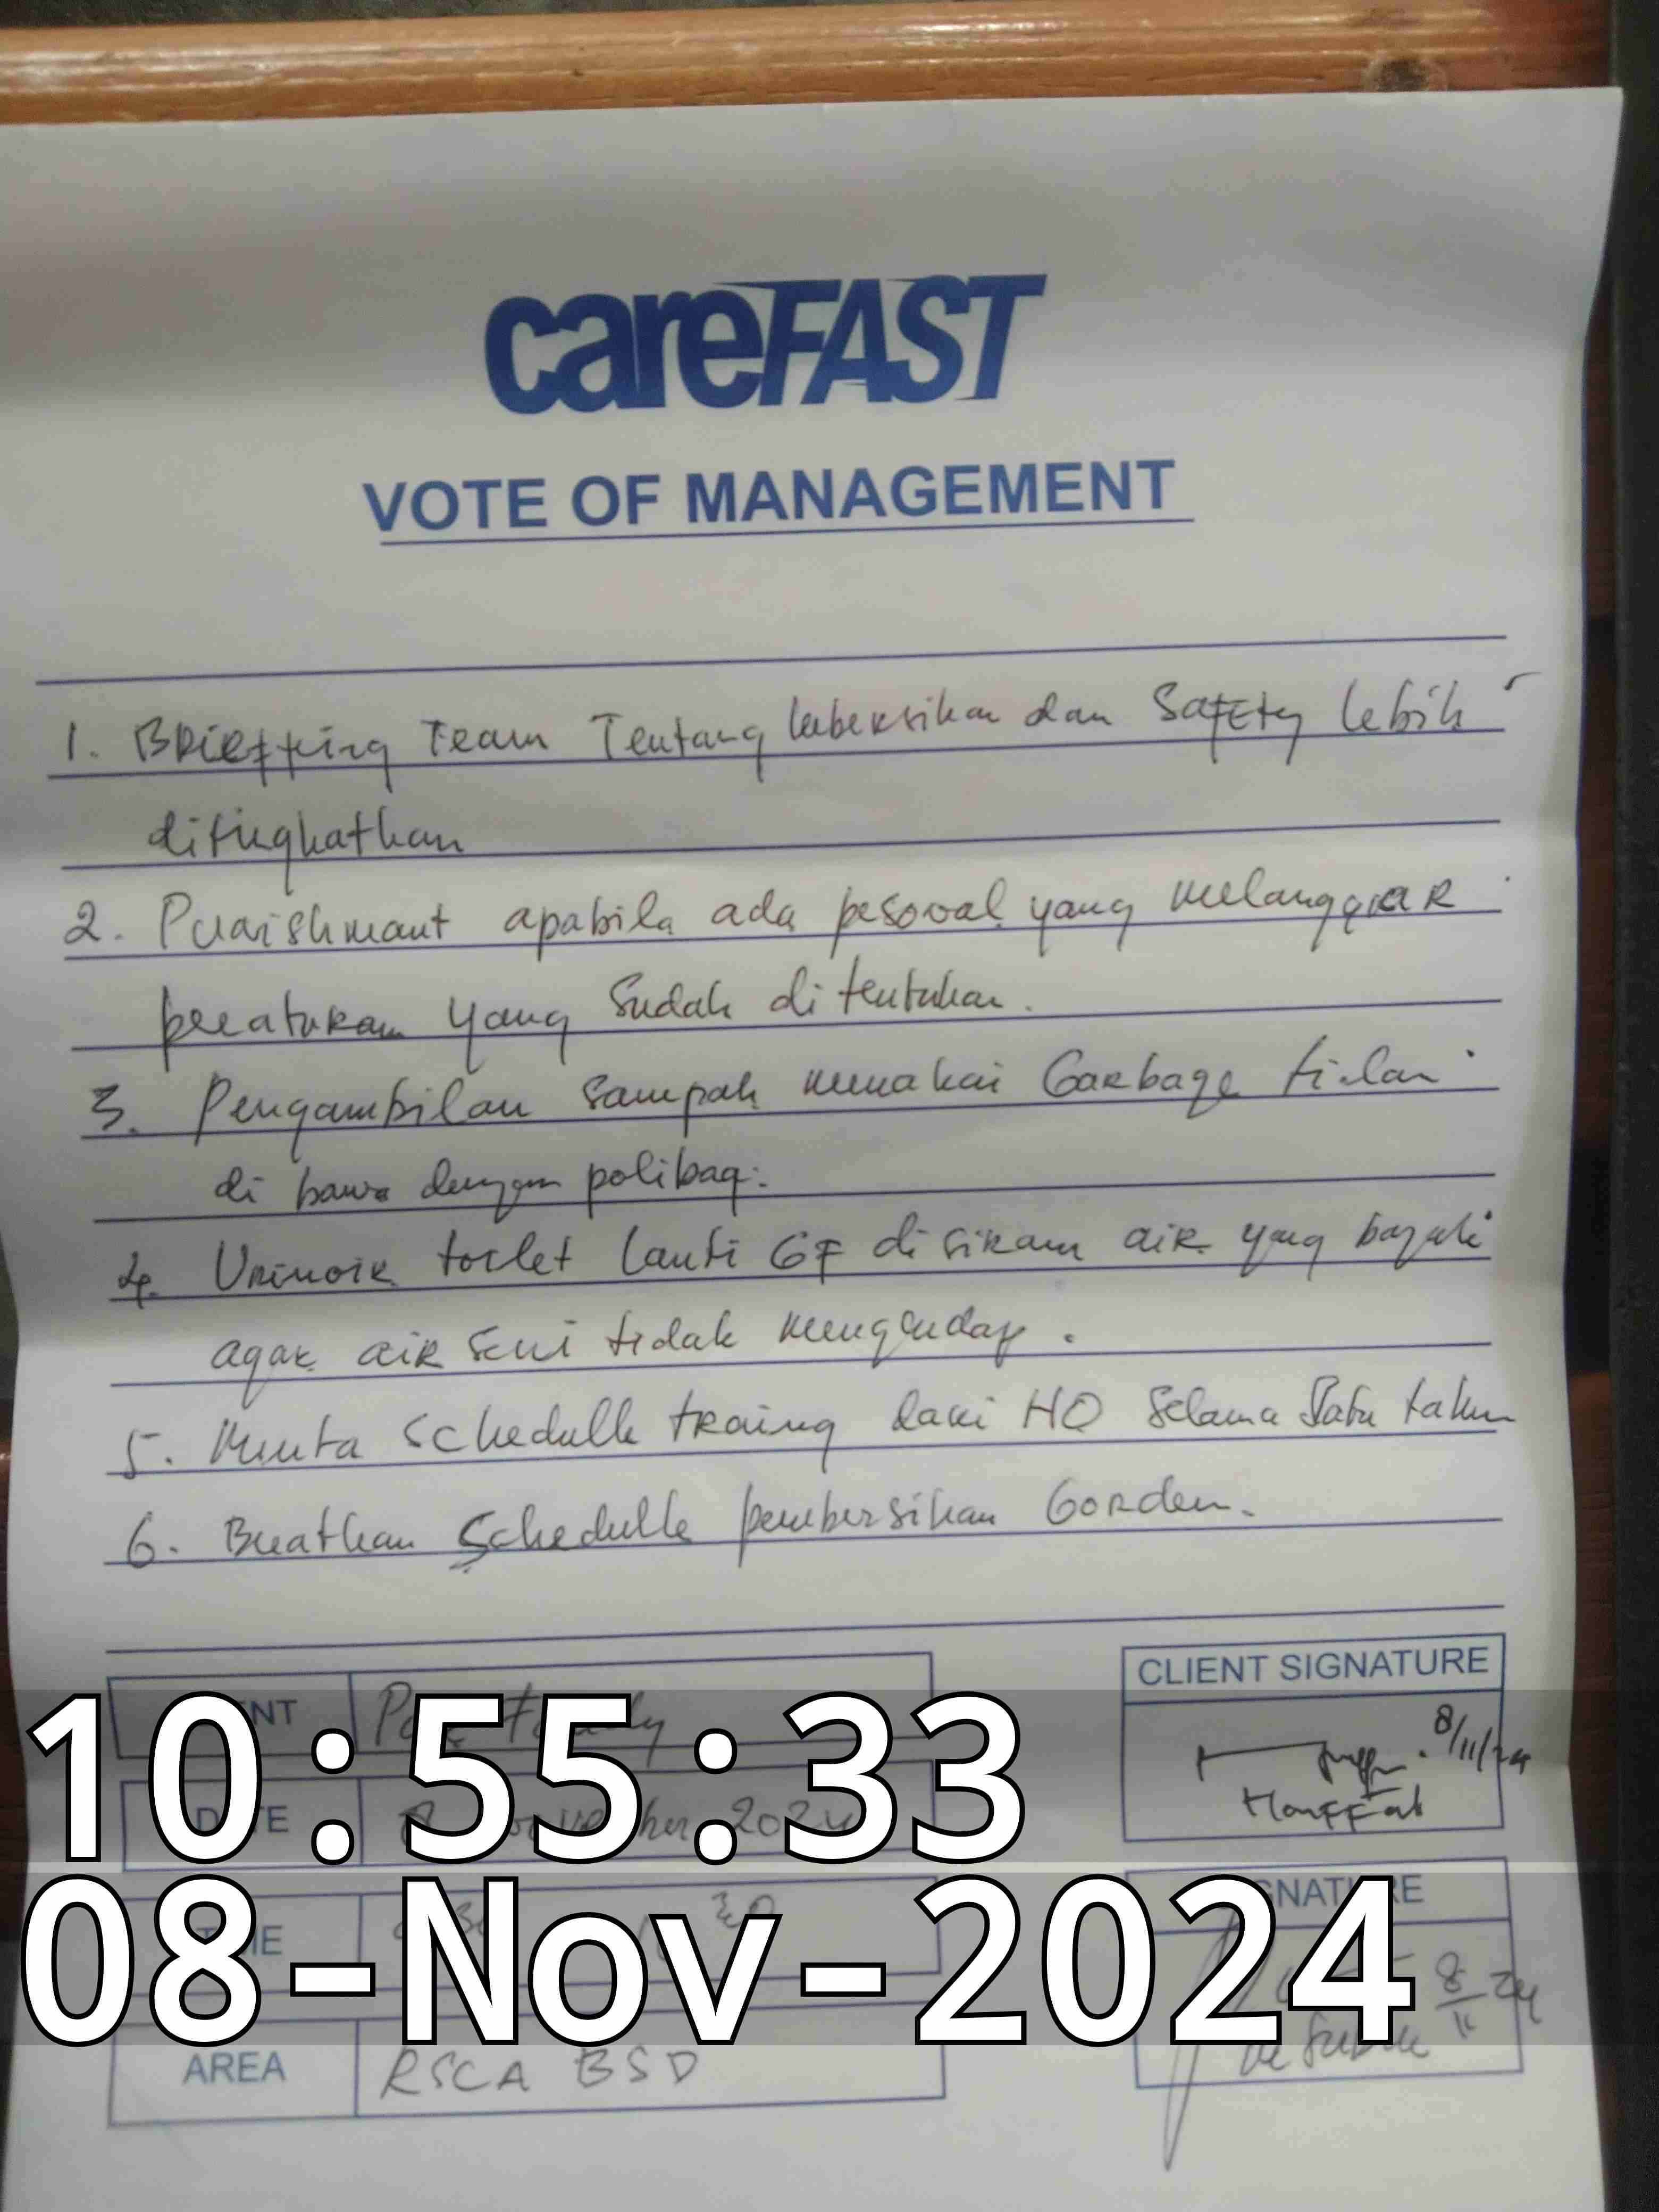 careFAST
VOTE OF MANAGEMENT
1. Brieffing Team Tentang kebersihan dan Safety lebih
ditingkatkan
2. Punishmant apabila ada pesonal yang melanggar
peraturan yang sudah di tentukan.
3. Pengambilan sampah memakai Garbage tidak
di bawa dengan polibag.
4. Urinoir toilet lantai GF di siram air yang banyak
agar air seni tidak mengendap.
5. Minta schedulle traing dari HO selama satu tahun
6. Buatkan Schedulle pembersihan Gorden.
CLIENT SIGNATURE
8/11/24
10:55:33
DATE November 2024
08-Nov-2024
TIME 30
SIGNATURE
8/11 24
AREA RSCA BSD